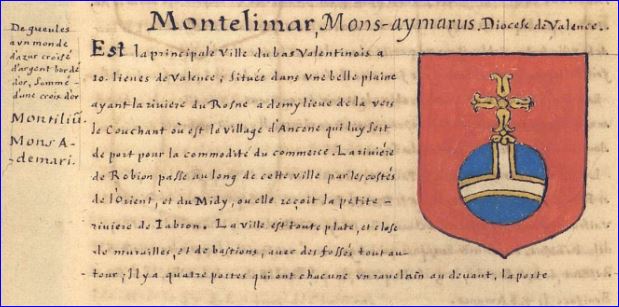 Montelimar, Mons-aymarus, Diocese de Valence.
De gueules
a vn monde
d'azur croisé
d'argent bordé
d'or, sommé
d'une croix d'or
Montiliū
Mons A-
-demari.
Est la principale Ville du bas Valentinois a
10. lieues de Valence; Située dans vne belle plaine
ayant la riviere du Rosne a demy lieue de la vers
le Couchant où est le village d'Ancone qui luy sert
de port pour la commodité du commerce. La riviére
de Robion passe au long de cette ville par les costés
de l'Orient, et du Midy, ou elle reçoit la petite -
riviere de Iabron. La ville est toute plate, et close
de murailles, et de bastions, avec des fossés tout au
-tour; Il y a quatre portes qui ont chacune vn ravelain au devant, la porte